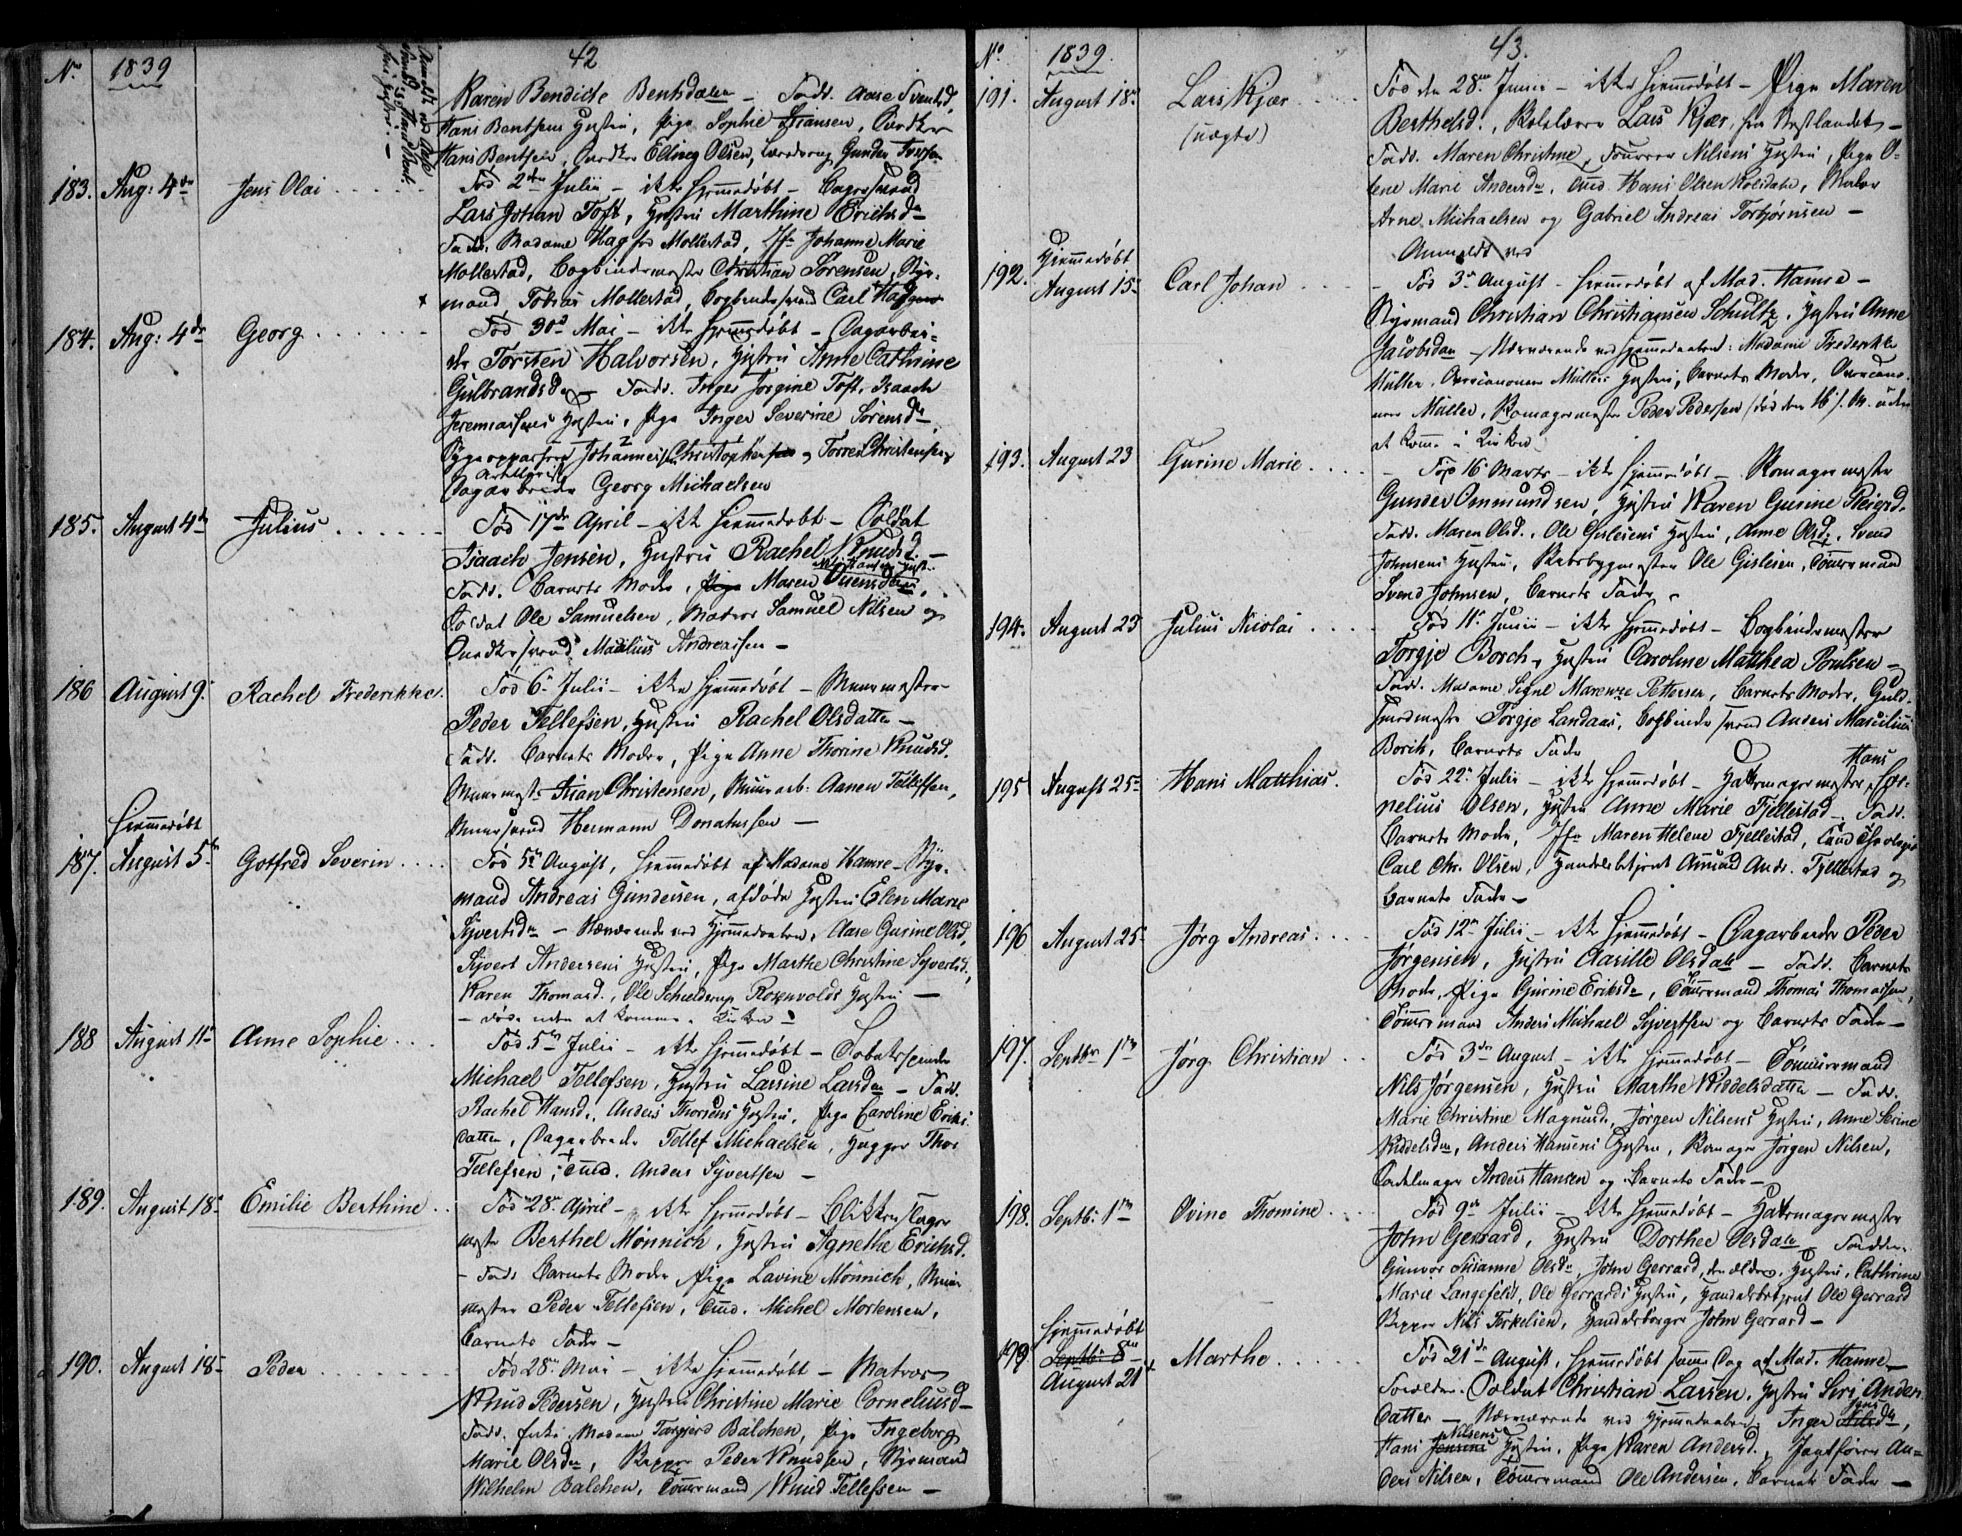 42
No 1839
Karen Bendicte Bentsdatter – Fadd. Aase Svendsd.
Hans Bentsens Hustru, Pige Sophie Hansen, Snedker
Hans Bentsen, Snedker Elling Olsen, Gunder Iversen
183. Aug: 4de Jens Olai
Fød 2den Julii – ikke hjemmedøbt – Bager svend
Lars Johan Toft, Hustru Marthine Erichsd
Fadd. Madame Mollestad, Jfr Johanne Marie
Mollestad, Bogbindermester Christian Sørensen, Styr-
mand Tobias Mollestad, Bogbindersvend Carl
184. Aug: 4de Georg
Fød 30te Mai – ikke hjemmedøbt – Dagarbei-
der Torsten Halvorsen, Hustru Anne Cathrine
Gulbrandsd – Fadd. Inger Jorgine Toft, Isaach
Jeremiassens Hustru, Pige Inger Severine Sørensd
Sygeopparter Johannes Christophersen og Torres Christensen,
Dagarbeider Georg Michaelsen
185. August 4de Julius
Fød 17de April – ikke hjemmedøbt – Soldat
Isaach Jensen, Hustru Rachel Knudsd. –
Fadd. Barnets Moder, Pige Maren
Soldat Ole Samuelsen, Matros Samuel Nilsen og
Snedkersvend Andreassen –
186 August 9. Rachel Frederikke
Fød 6te Julii – ikke hjemmedøbt – Muurmester
Peder Tellefsen, Hustru Rachel Olsdatter –
Fadd. Barnets Moder, Pige Anne Thorine Knudsd.
Muurmester Christensen, Muurarb. Aanen Tellefsen,
Muursvend Hermann Donatussen –
Hjemmedøbt
187. August 5te Gotfred Severin
Fød 5te August, hjemmedøbt af Madame Hamre – Styr-
mand Andreas Gundersen, afdøde Hustru Elen Marie
Syvertsd – Nærværende ved Hjemmedaaben, Aase Gurine Olsd,
Syvert Andersens Hustru, Pige Marthe Christine Syvertsd,
Karen Thomasd., Ole Schelderup Rosenvolds Hustru –
– døde uden at komme i Kirken –
188 August 11te Anne Sophie
Fød 5te Julii – ikke hjemmedøbt – Tobakspinder
Michael Tellefsen, Hustru Larsine Larsd – Fadd.
Rachel Hansd., Anders Thorsens Hustru, Pige Caroline Eriks-
datter, Dagarbeider Tellef Michaelsen, Thor
Tellefsen, Anders Syvertsen –
189. August 18 Emilie Berthine
Fød 28 April – ikke hjemmedøbt – Blikkenslager
mester Berthel Mønnich, Hustru Agnethe Erichsd.
– Fadd. Barnets Moder, Pige Lavine Mønnich, Muur
mester Peder Tellefsen, Michel Mortensen,
Barnets Fader –
190. August 18 Peder
Fød 28 Mai – ikke hjemmedøbt – Matros
Knud Pedersen, Hustru Christine Marie Corneliusd –
Fadd. Enke Madam Torgjerd Balchen, Pige Ingeborg
Marie Olsd, Skipper Peder Knudsen, Styrmand
Wilhelm Balchen, Tømmermand Knud Tellefsen –
43.
No 1839.
191. August 18 Lars Kjær
(uægte)
Fød den 28 Junii – ikke hjemmedøbt – Pige Maren
Berthelsd., Lars Kjær, fra Vestlandet –
Fadd. Maren Christine, Nilsens Hustru, Pige O-
lene Marie Andersd, Hans Olsen Roligdale, Maler
Arne Michaelsen og Gabriel Andreas Torbjørnsen –
Anmeldt ved
Hjemmedøbt
192. August 15 Carl Johan
– Fød 3 August – hjemmedøbt af Mad. Hamre –
Styrmand Christian Christiansen Schultz, Hustru Anne
Jacobsdatter – Nærværende ved Hjemmedaaben: Madame Frederikke
Müller, Müllers Hustru, Barnets Moder,
Müller, Skomagermester Peder Pedersen (død den 16 uden
at komme i Kirken
193. August 23 Gurine Marie
– Fød 16 Marts – ikke hjemmedøbt – Skomagermester
Gunder Ommundsen, Hustru Karen Gurine Reiersd.
Fadd. Maren Olsd., Ole Gislesens Hustru, Anne Olsd, Svend
Johnsens Hustru, Skibsbygmester Ole Gislesen, Tømmermand
Svend Johnsen, Barnets Fader –
194. August 23 Julius Nicolai
Fød 11 Junii – ikke hjemmedøbt – Bogbindermester
Torgje Borch, Hustru Caroline Matthea Poulsen –
Fadd. Madame Signe Marenze Pettersen, Barnets Moder, Guld-
smedmester Torgje Landaas, Bogbindersvend Anders Marcilius
Borch, Barnets Fader
195 August 25 Hans Matthias
Fød 22 Julii – ikke hjemmedøbt – Hattemagermester Hans Cor-
nelius Olsen, Hustru Anne Marie Fjellestad – Fadd.
Barnets Moder, Jfr Maren Helene Fjellestad, Cand Theologie
Carl Chr. Olsen, Handelsbetjent Amund Ands. Fjellestad og
Barnets Fader –
196 August 25 Jørg Andreas
Fød 12 Julii – ikke hjemmedøbt – Dagarbeider Peder
Jørgensen, Hustru Aasille Olsdatt – Fadd. Barnets
Moder, Pige Gurine Eriksd, Tømmermand Thomas Thomassen,
Tømmermand Anders Michael Syvertsen og Barnets Fader –
197. Septbr 1te Jørg Christian
Fød 3de August – ikke hjemmedøbt – Tømmermand
Nils Jørgensen, Hustru Marthe Kiddelsdatter – Fadd.
Marie Christine Magnusd., Jørgen Nilsens Hustru, Anne Serine
Kiddelsd, Anders Hansens Hustru, Skomager Jørgen Nilsen,
Sadelmager Anders Hansen og Barnets Fader –
198. Septb: 1te Ovine Thomine
Fød 9de Julii – ikke hjemmedøbt – Hattemagermester
John Gerrard, Hustru Dorthee Olsdatt – Faddere.
Gunvor Susanne Olsd, John Gerrard, den ældre, Hustru, Cathrine
Marie Langefeldt, Ole Gerrards Hustru, Handelsbetjent Ole Gerrard
Skipper Nils Terkelsen, Handelsborger John Gerrard –
Hjemmedøbt
199 Septb: 8de
August 21 Marthe
Fød 21de August, hjemmedøbt samme Dag af Mad. Hamre –
Forældre. Soldat Christian Larsen, Hustru Siri Anders
datter – Nærværende ved Hjemmedaaben, Inger Nilsd,
Hans Jensens Nilsens Hustru, Pige Karen Andersd., Jagtfører An-
ders Nilsen, Tømmermand Ole Andersen, Barnets Fader –